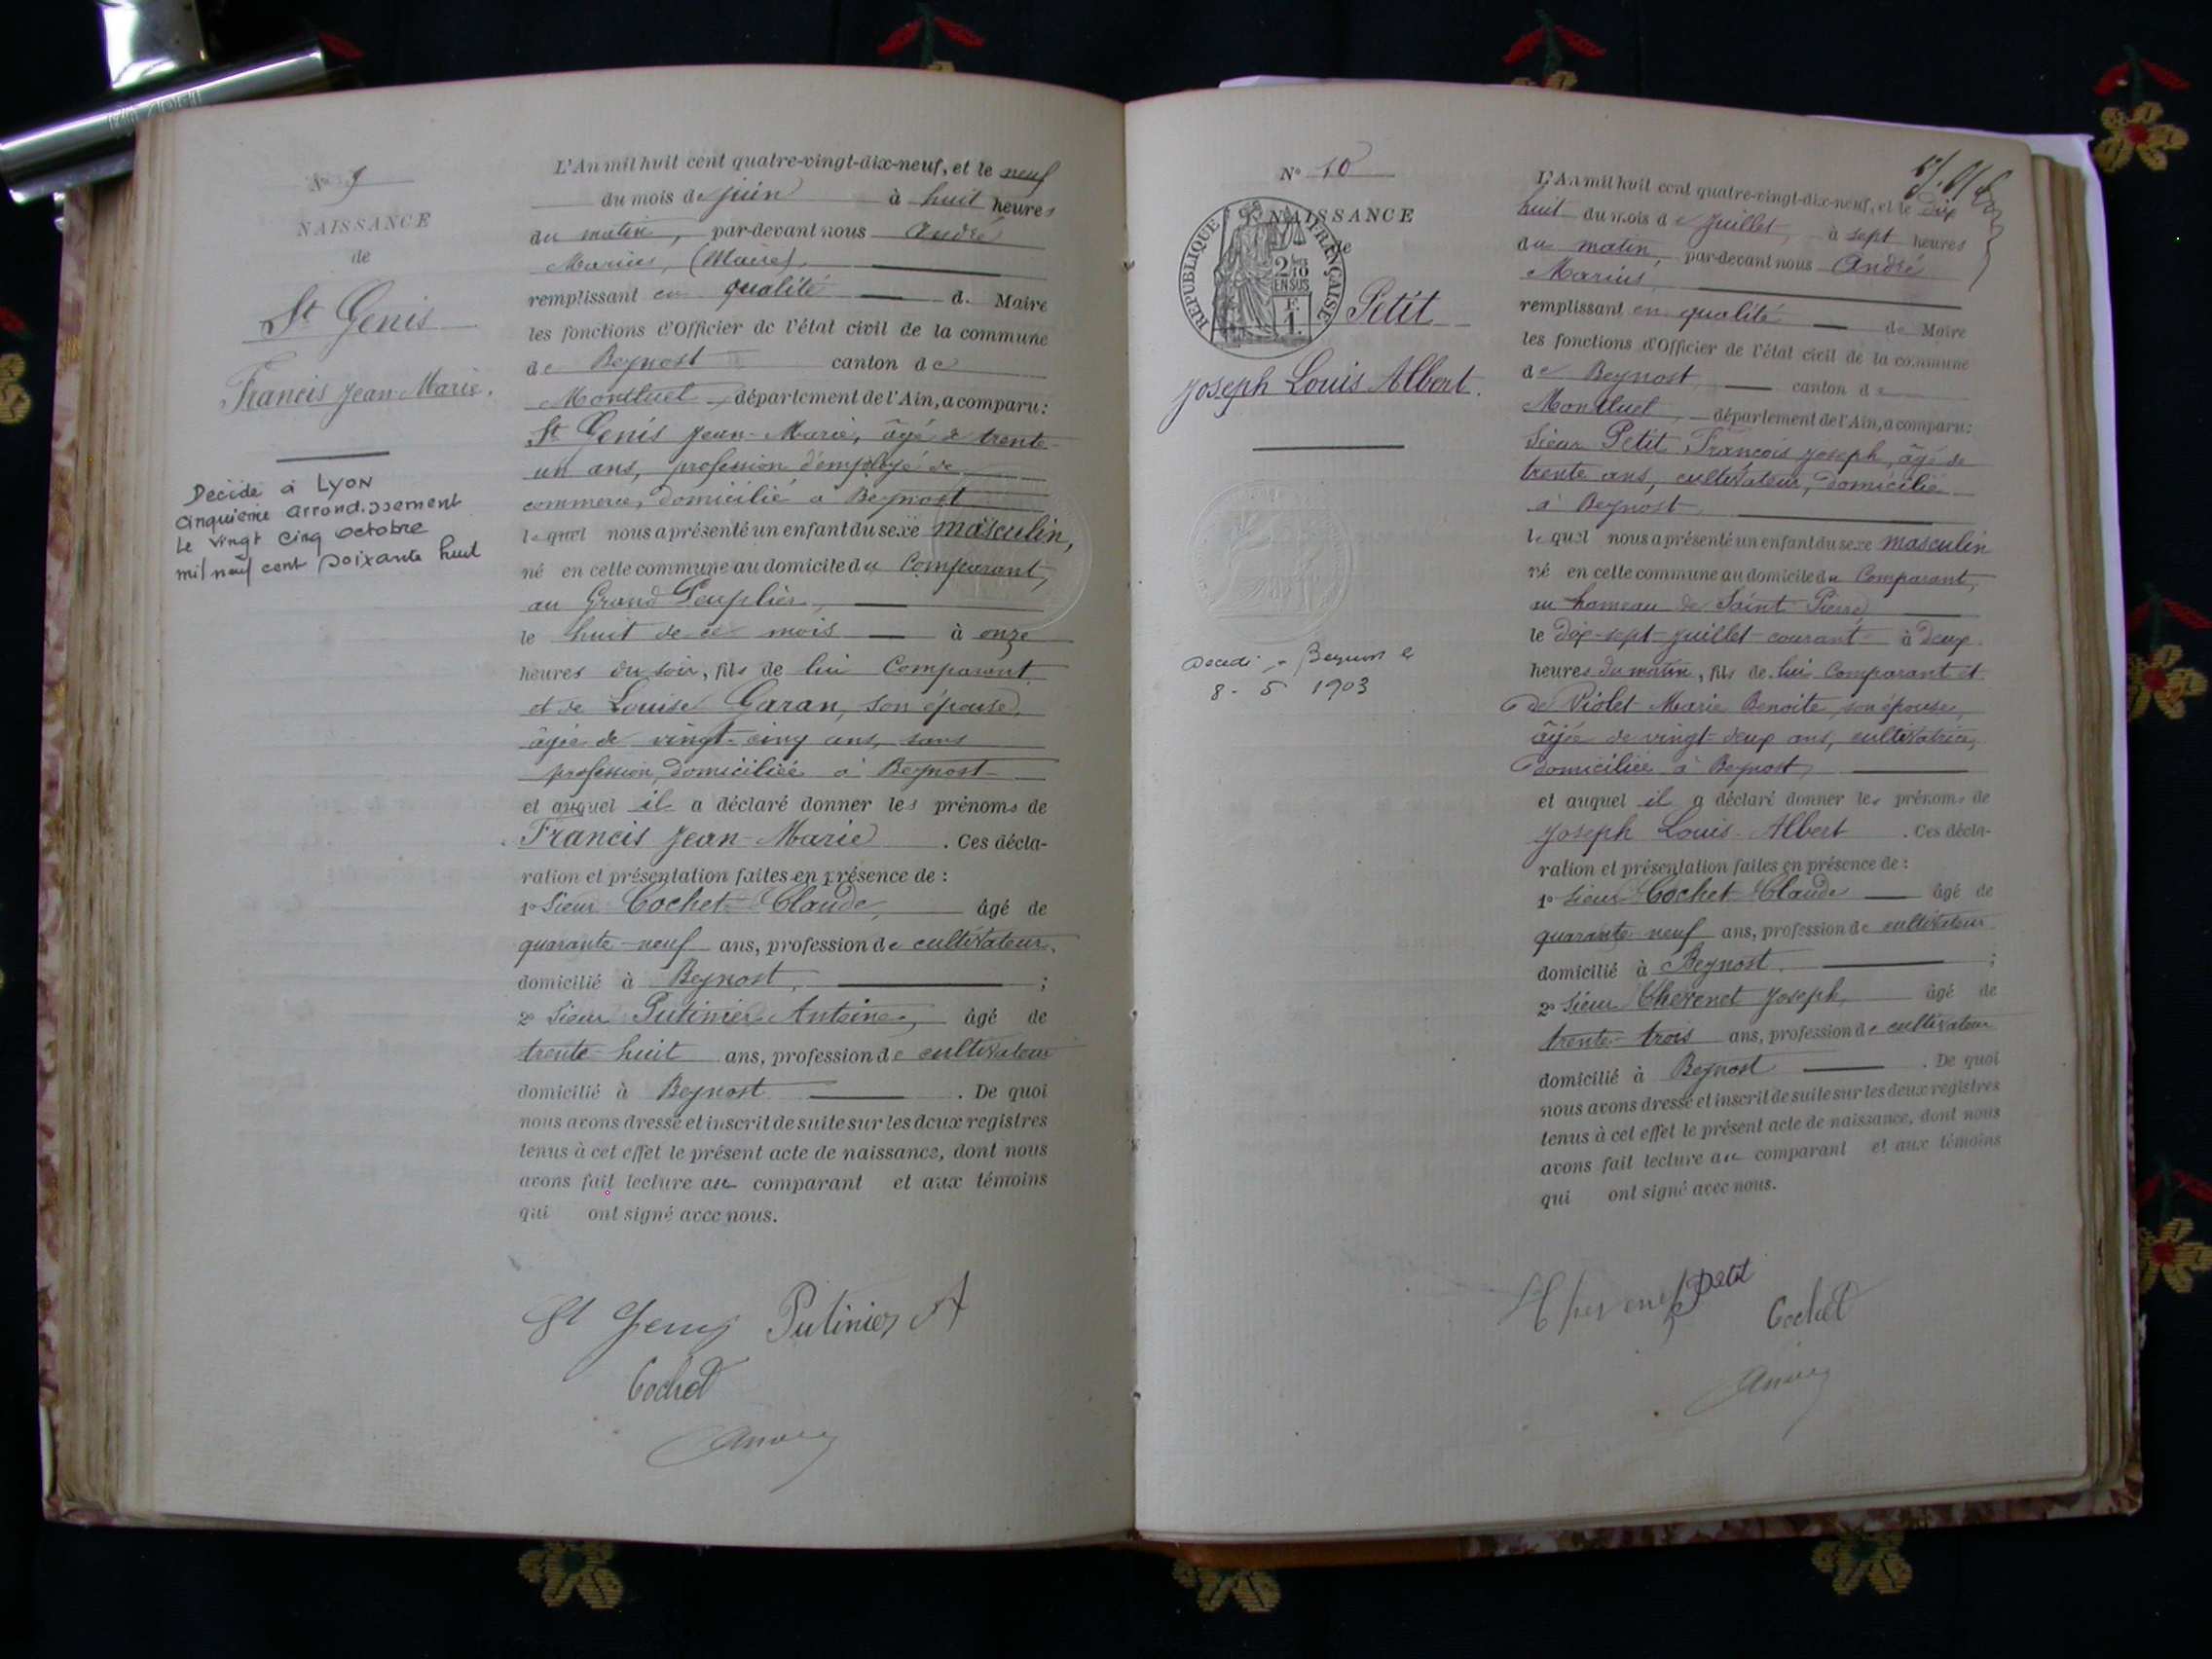 N° 9
NAISSANCE
de
St Genis
Francis Jean-Marie.
Décidé à Lyon
cinquième arrondissement
le vingt cinq octobre
mil neuf cent soixante huit
L'An mil huit cent quatre-vingt-dix-neuf, et le neuf
du mois de juin à huit heures
du matin, par-devant nous André
Marius, (Maire)
remplissant en qualité de Maire
les fonctions d'Officier de l'état civil de la commune
de Beynost canton de
Montluel, département de l'Ain, a comparu:
St Genis Jean-Marie, âgé de trente-
un ans, profession d'employé de
commerce, domicilié à Beynost
lequel nous a présenté un enfant du sexe masculin,
né en cette commune au domicile du Comparant,
au Grand Peuplier,
le huit de ce mois à onze
heures du soir, fils de lui Comparant
et de Louise Garan, son épouse,
âgée de vingt-cinq ans, sans
profession, domiciliée à Beynost
et auquel il a déclaré donner les prénoms de
Francis Jean-Marie. Ces décla-
ration et présentation faites en présence de :
1° Sieur Cochet Claude, âgé de
quarante-neuf ans, profession de cultivateur,
domicilié à Beynost, ;
2° Sieur Putinier Antoine, âgé de
trente-huit ans, profession de cultivateur
domicilié à Beynost. De quoi
nous avons dressé et inscrit de suite sur les deux registres
tenus à cet effet le présent acte de naissance, dont nous
avons fait lecture au comparant et aux témoins
qui ont signé avec nous.
St Genis Putinier A
Cochet
André
N° 10
NAISSANCE
de
REPUBLIQUE FRANÇAISE
2/10 EN SUS
F.
1.
Petit
Joseph Louis Albert.
Decedi a Beynost le
8-5 1903
L'An mil huit cent quatre-vingt-dix-neuf, et le dix
huit du mois de Juillet, à sept heures
du matin, par-devant nous André
Marius,
remplissant en qualité de Maire
les fonctions d'Officier de l'état civil de la commune
de Beynost, canton de
Montluel, département de l'Ain, a comparu:
Sieur Petit François Joseph, âgé de
trente ans, cultivateur, domicilié
à Beynost
lequel nous a présenté un enfant du sexe masculin
né en cette commune au domicile du Comparant,
au hameau de Saint-Pierre
le dix-sept juillet courant à deux
heures du matin, fils de lui Comparant et
de Violet Marie Benoîte, son épouse,
âgée de vingt-deux ans, cultivatrice,
domiciliée à Beynost,
et auquel il a déclaré donner les prénoms de
Joseph Louis Albert. Ces décla-
ration et présentation faites en présence de :
1° Sieur Cochet Claude âgé de
quarante-neuf ans, profession de cultivateur
domicilié à Beynost. ;
2° Sieur Chevenet Joseph, âgé de
trente-trois ans, profession de cultivateur
domicilié à Beynost. De quoi
nous avons dressé et inscrit de suite sur les deux registres
tenus à cet effet le présent acte de naissance, dont nous
avons fait lecture au comparant et aux témoins
qui ont signé avec nous.
Chevenet Petit
Cochet
André